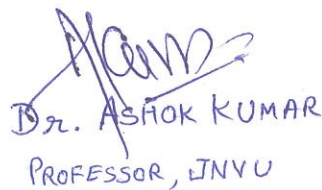 Dr. ASHOK KUMAR
PROFESSOR, JNVU